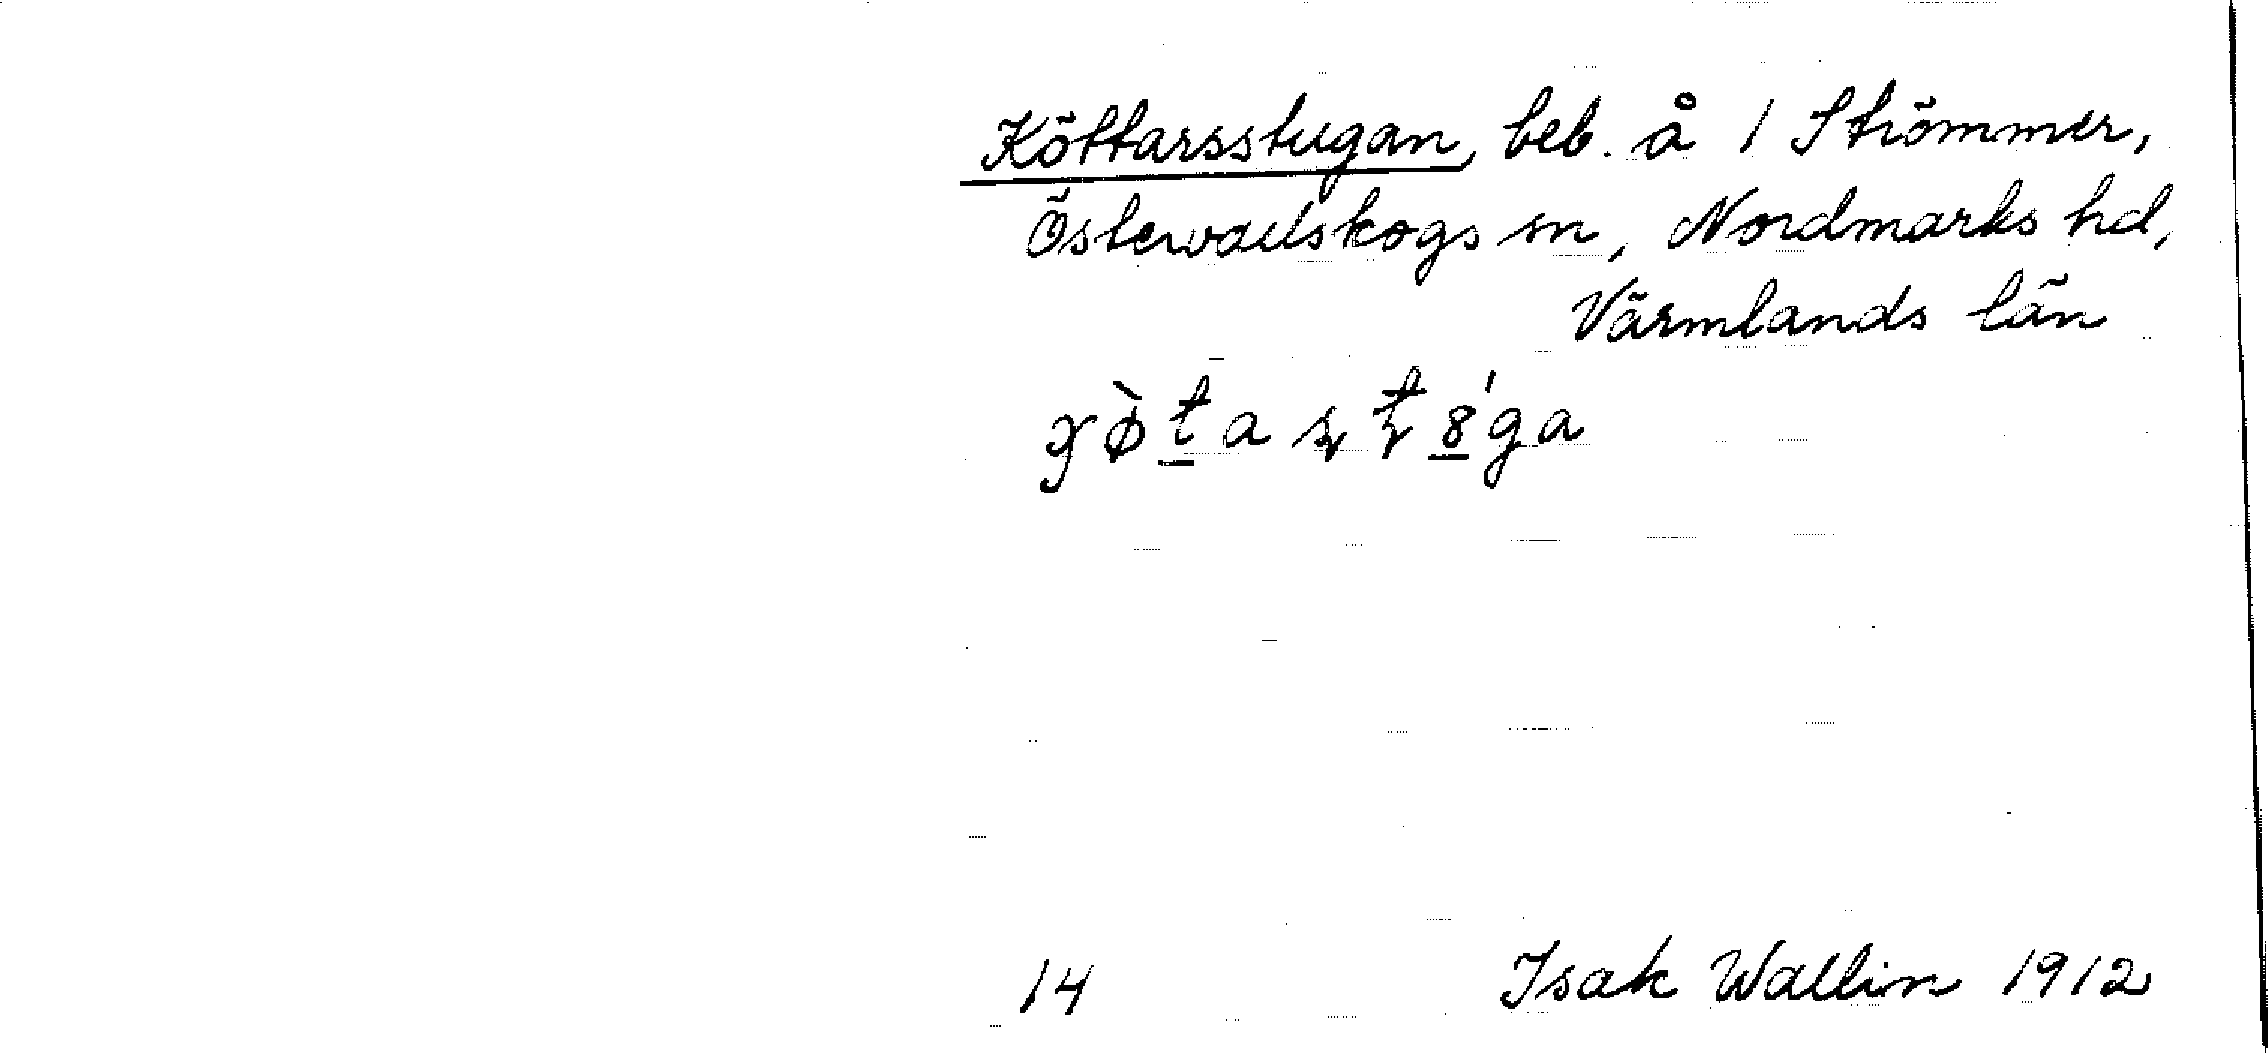 Köttarsstugan, beb. å 1 Strömmer,
Östervallskogs sn, Nordmarks hd,
Värmlands län
14 Isak Wallin 1912